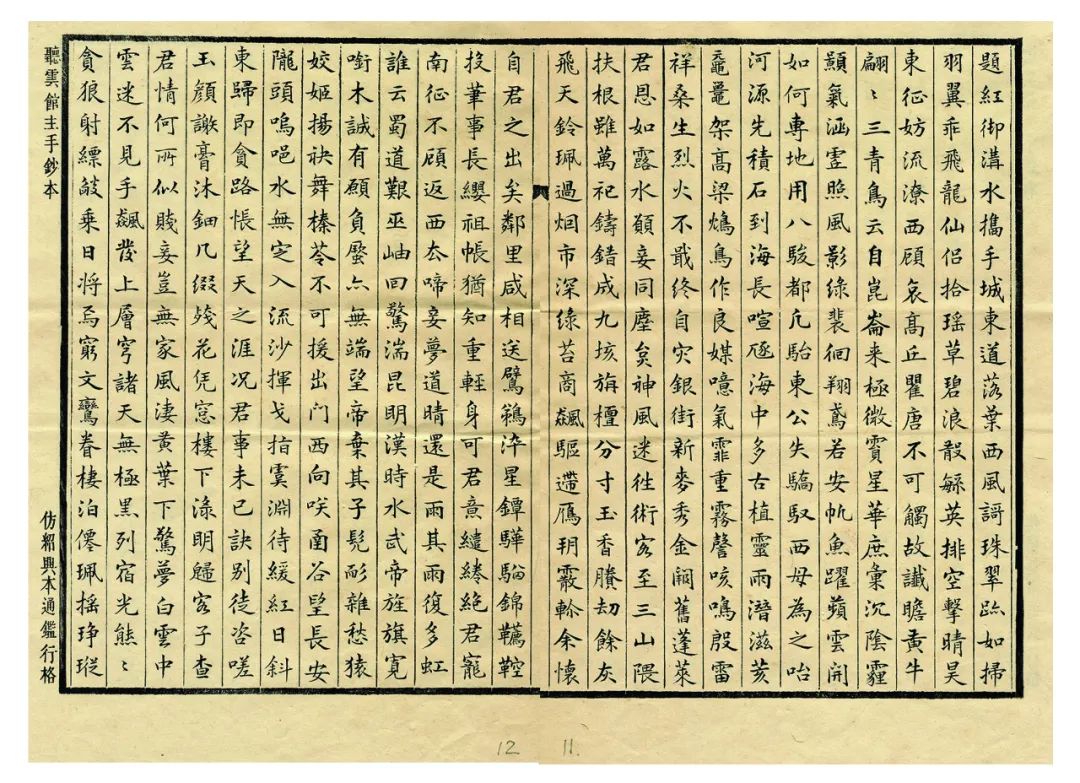 題紅御溝水攜手城東道落葉西風謌珠翠跡如掃
羽翼乖飛龍仙侶拾瑶草碧浪散緜英排空擊晴昊
東征妨流潦西顧哀高丘瞿唐不可觸故讖瞻黄牛
翩〻三青鳥云自崑崙来極微賓星華庶彙沉陰霾
顥氣涵霊照風影綠裴佪翔鳶若安帆魚躍蘋雲開
如何專地用八駿都凢駘東公失驕馭西母為之咍
河源先積石到海長喧豗海中多古植靈雨潛滋荄
黿鼉架高梁鴆鳥作良媒噫氣霏重霧謦咳鳴殷雷
祥桑生烈火不戢終自灾銀街新麥秀金闕舊蓬萊
君恩如露水顧妾同塵炱神風迷徃術客至三山隈
扶根雖萬祀鑄錯成九垓旃檀分寸玉香賸劫餘灰
飛天鈴珮過烟市深绿苔商飆驅遰鴈玥霰軫余懷
自君之出矣鄰里咸相送臂淬星鐔驊騮錦韉鞚
投筆事長纓祖帳猶知重輕身可君意繾綣絶君寵
南征不顧返西厺啼妾夢道晴還是雨其雨復多虹
誰云蜀道艱巫岫回驚湍昆明漢時水武帝旌旗寛
銜木誠有願負蜃亦無端望帝棄其子髡耏雜愁猿
姣姬揚袂舞榛苓不可援出门西向咲函谷望長安
隴頭嗚咽水無定入流沙揮戈指虞淵待緩紅日斜
東歸即貪路悵望天之涯况君事未已訣別徒咨嗟
玉顔謝膏沐鈿几綴殘花凭窓樓下渌明歸客子查
君情何所似賤妾豈無家風凄黄葉下驚夢白雲中
雲迷不見手飆發上層穹諸天無極黑列宿光熊〻
貪狼射縹乗日将焉窮文鸞眷棲泊僊珮摇琤瑽
聽雲館主手鈔本
仿紹興本通鑑行格
12
11.